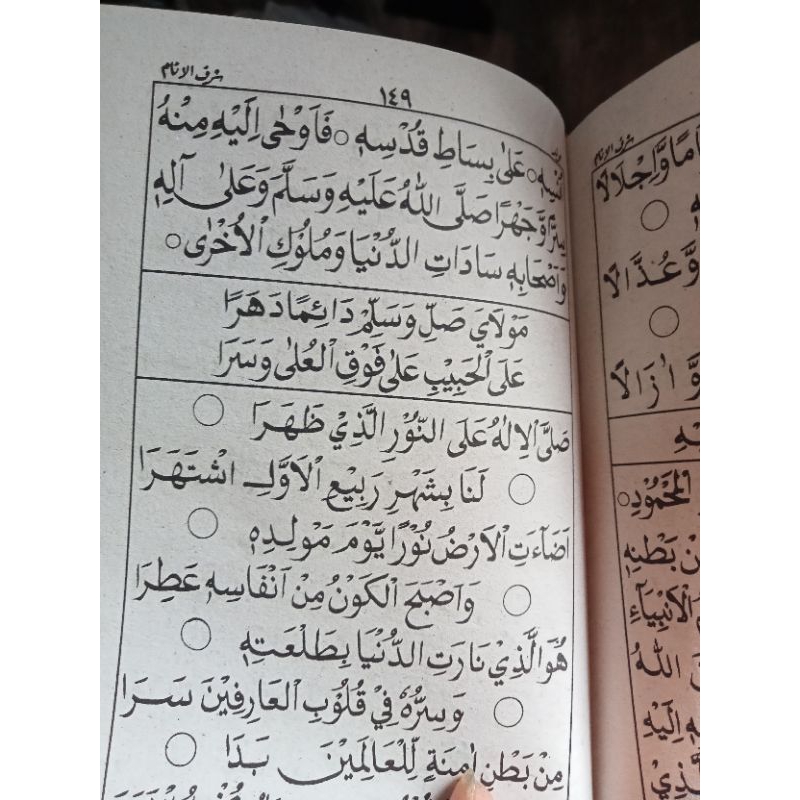 شرف الانام
١٤٩
عَلٰى بِسَاطِ قُدْسِهٖ ○ فَاَوْحٰى اِلَيْهِ مِنْهُ
سِرًّا وَّجَهْرًا صَلَّى اللهُ عَلَيْهِ وَسَلَّمَ وَعَلٰى آلِهٖ
وَاَصْحَابِهٖ سَادَاتِ الدُّنْيَا وَمُلُوْكِ الْاُخْرٰى ○
مَوْلَايَ صَلِّ وَسَلِّمْ دَائِمًا دَهَرًا
عَلَى الْحَبِيْبِ عَلٰى فَوْقِ الْعُلٰى وَسَرَا
صَلَّى الْاِلٰهُ عَلَى النُّوْرِ الَّذِيْ ظَهَرَا ○
○ لَنَا بِشَهْرِ رَبِيْعِ الْاَوَّلِ اشْتَهَرَا
اَضَاءَتِ الْاَرْضُ نُوْرًا يَّوْمَ مَوْلِدِهٖ ○
○ وَاَصْبَحَ الْكَوْنُ مِنْ اَنْفَاسِهٖ عَطِرَا
هُوَ الَّذِيْ نَارَتِ الدُّنْيَا بِطَلْعَتِهٖ ○
○ وَسِرُّهٗ فِيْ قُلُوْبِ الْعَارِفِيْنَ سَرَا
مِنْ بَطْنِ اٰمِنَةٍ لِّلْعَالَمِيْنَ بَدَا ○
شرف الانام
وَّاِجْلَالًا
○
وَّعُذَّالًا
○
الْمَحْمُوْدِ ○
بَطْنِهٖ
الْاَنْبِيَآءِ
اللهُ
اِلَيْهِ